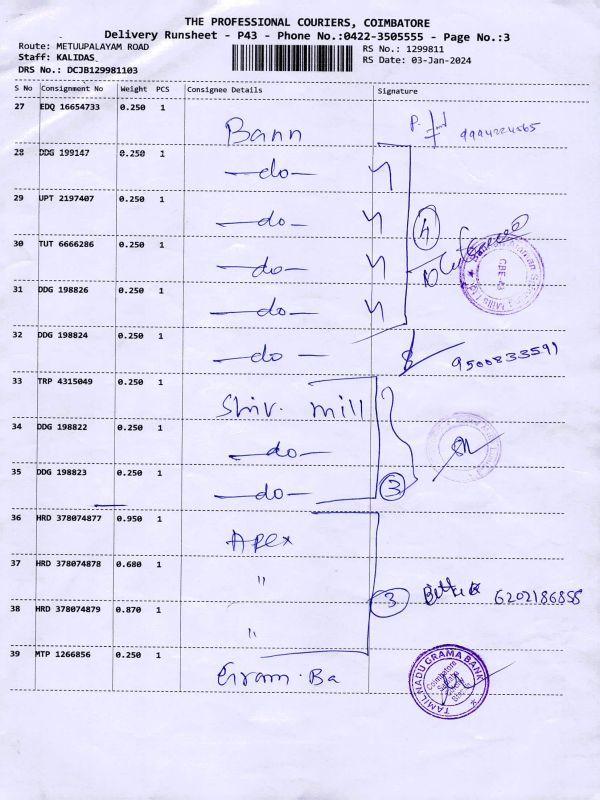 THE PROFESSIONAL COURIERS, COIMBATORE
Delivery Runsheet - P43 - Phone No.:0422-3505555 - Page No.:3
Route: METUUPALAYAM ROAD RS No.: 1299811
Staff: KALIDAS RS Date: 03-Jan-2024
DRS No.: DCJB129981103
S No Consignment No Weight PCS Consignee Details Signature
27 EDQ 16654733 0.250 1 Bann
28 DDG 199147 0.250 1 —do—
29 UPT 2197407 0.250 1 —do—
30 TUT 6666286 0.250 1 —do— 4
31 DDG 198826 0.250 1 —do—
32 DDG 198824 0.250 1 —do— 9500833591
33 TRP 4315049 0.250 1 Shiv. mill
34 DDG 198822 0.250 1 —do—
35 DDG 198823 0.250 1 —do— 3
36 HRD 378074877 0.950 1 Apex
37 HRD 378074878 0.680 1 "
3 6202186855
38 HRD 378074879 0.870 1 "
39 MTP 1266856 0.250 1 Gram. Ba
TAMILNADU GRAMA BANK
Coimbatore